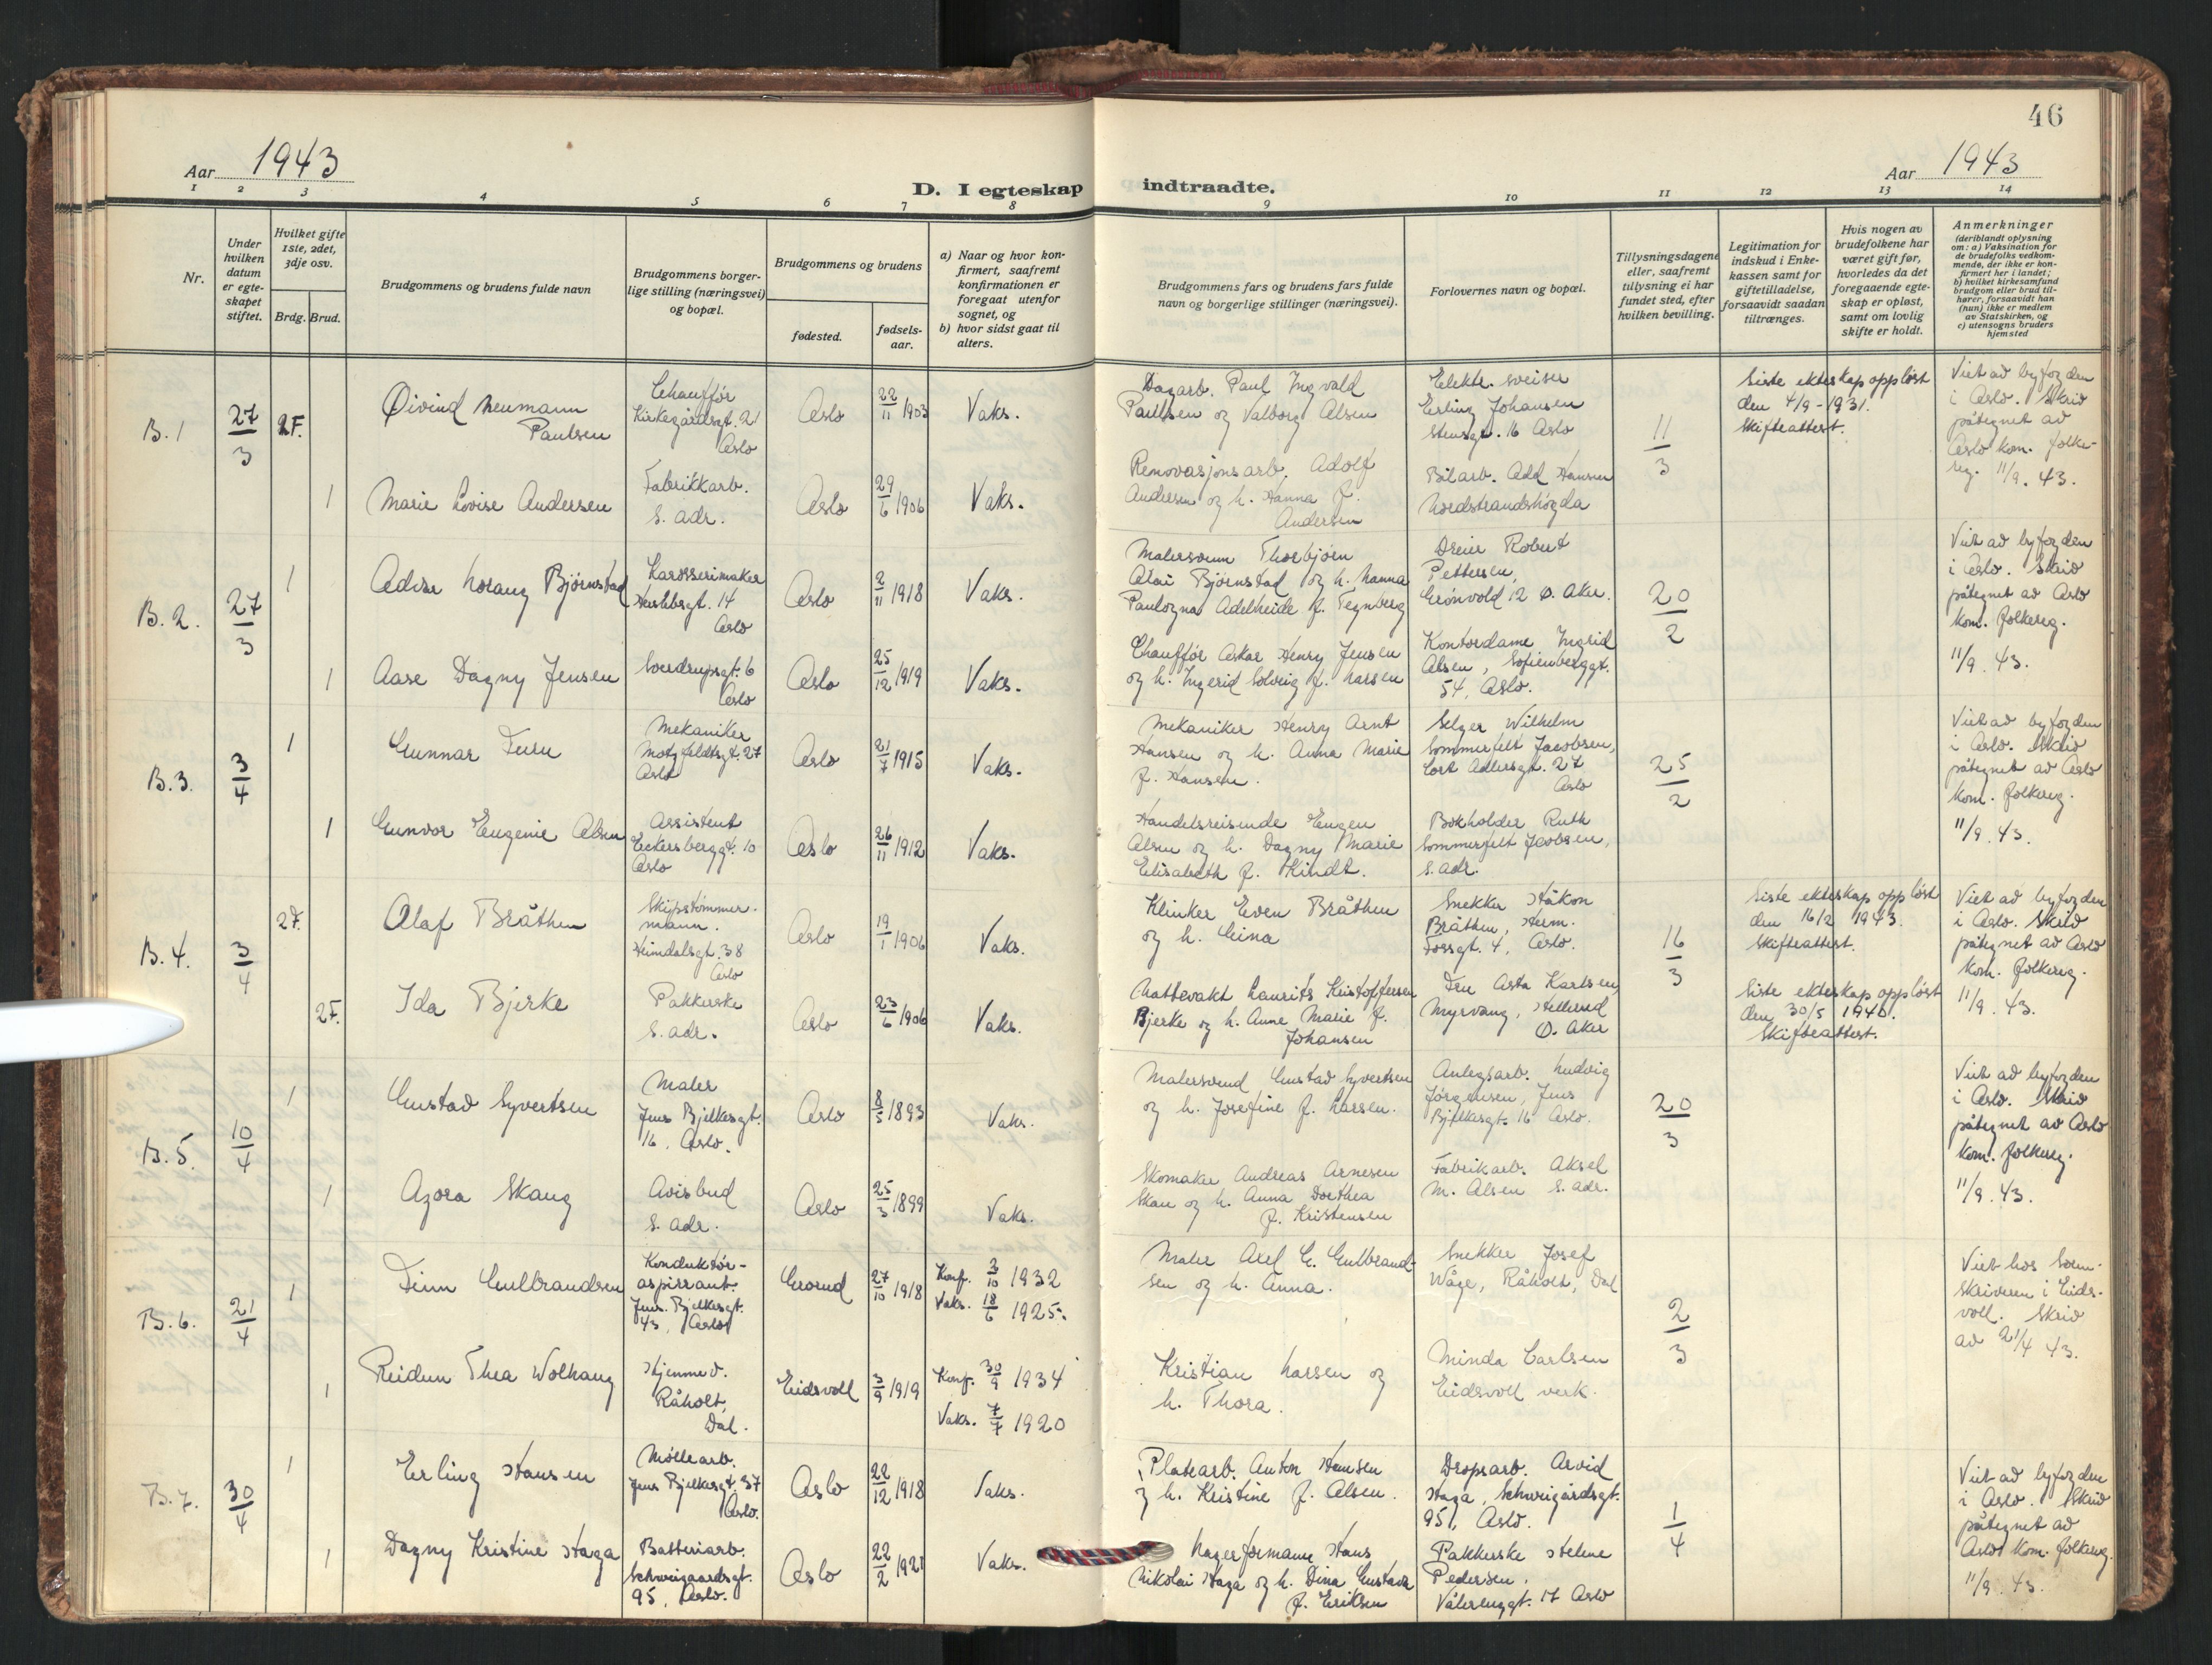 46
Aar 1943
Aar 1943
D. I egteskap indtraadte.
1 2 3 4 5 6 7 8 9 10 11 12 13 14
Nr.
Under hvilken datum er egteskapet stiftet.
Hvilket gifte 1ste, 2det, 3dje osv.
Brdg. Brud.
Brudgommens og brudens fulde navn
Brudgommens borgerlige stilling (næringsvei) og bopæl.
Brudgommens og brudens
fødested.
fødselsaar.
a) Naar og hvor konfirmert, saafremt konfirmationen er foregaat utenfor sognet, og
b) hvor sidst gaat til alters.
Brudgommens fars og brudens fars fulde navn og borgerlige stillinger (næringsvei).
Forlovernes navn og bopæl.
Tillysningsdagene eller, saafremt tillysning ei har fundet sted, efter hvilken bevilling.
Legitimation for indskud i Enkekassen samt for giftetilladelse, forsaavidt saadan tiltrænges.
Hvis nogen av brudefolkene har været gift før, hvorledes da det foregaaende egteskap er opløst, samt om lovlig skifte er holdt.
Anmerkninger
(deriblandt oplysning om: a) Vaksination for de brudefolks vedkommende, der ikke er konfirmert her i landet; b) hvilket kirkesamfund brudgom eller brud tilhører, forsaavidt han (hun) ikke er medlem av Statskirken, og c) utensogns bruders hjemsted
B. 1
27/3
2F.
Øivind Neumann
Paulsen
Chauffør
Kirkegårdsgt. 21
Oslo
Oslo
22/11 1903
Vaks.
Dagarb. Paul Ingvald
Paulsen og Valborg Olsen
Elektr. sveiser
Erling Johansen
Stensgt. 16 Oslo
11/3
Siste ekteskap oppløst
den 4/9-1931.
Skifteattest.
Viet av byfogden
i Oslo. Skriv
påtegnet av
Oslo kom. folke-
reg. 11/9. 43.
1
Marie Lovise Andersen
Fabrikkarb.
s. adr.
Oslo
29/6 1906
Vaks.
Renovasjonsarb. Adolf
Andersen og h. Hanna f.
Andersen
Bilarb. Odd Hansen
Nordstrandshøgda
B. 2.
27/3
1
Karosserimaker
14
Oslo
Oslo
2/11 1918
Vaks.
Malersvenn Thorbjørn
Olai Bjørnstad og h. Nanna
Adelheide f. Tegnberg
Dreier Robert
Pettersen,
Grønvold 12 Ø. Aker.
20/2
Viet av byfogden
i Oslo. Skriv
påtegnet av Oslo
kom. folkereg.
11/9. 43.
1
Aase Dagny Jensen
Sverdrupsgt. 6
Oslo
Oslo
25/12 1919
Vaks.
Chauffør Oskar Henry Jensen
og h. Ingerid Solveig f. Larsen
Kontordame Ingrid
Olsen, Sofienberggt.
54, Oslo.
B. 3.
3/4
1
Gunnar Furu
Mekaniker
Motzfeldtsgt. 27
Oslo
Oslo
21/7 1915
Vaks.
Mekaniker Henry Arnt
Hansen og h. Anna Marie
f. Hansen.
Selger Wilhelm
Sommerfelt Jacobsen,
Cort Adlersgt. 27
Oslo
25/2
Viet av byfogden
i Oslo. Skriv
påtegnet av Oslo
kom. folkereg.
11/9. 43.
1
Gunvor Eugenie Olsen
Assistent
Eckersberggt. 10
Oslo
Oslo
26/11 1912
Vaks.
Handelsreisende Eugen
Olsen og h. Dagny Marie
Elisabeth f. Hindt.
Bokholder Ruth
Sommerfelt Jacobsen,
s. adr.
B. 4.
3/4
2F.
Olaf Bråthen
Skipstømmer-
mann.
Heimdalsgt. 38
Oslo
Oslo
19/1 1906
Vaks.
Klinker Even Bråthen
og h. Gina
Snekker Håkon
Bråthen, Herm.
Fossgt. 4, Oslo.
16/3
Siste ekteskap oppløst
den 16/2 1943.
Skifteattest.
Viet av byfogden
i Oslo. Skriv
påtegnet av Oslo
kom. folkereg.
11/9. 43.
2F.
Ida Bjerke
Pakkerske
s. adr.
Oslo
23/6 1906
Vaks.
Nattevakt Laurits Kristoffersen
Bjerke og h. Anne Marie f.
Johansen
Fru Asta Karlsen,
Myrvang, Hellerud
Ø. Aker
Siste ekteskap oppløst
den 30/5 1940.
Skifteattest.
B. 5.
10/4
1
Gustav Syvertsen
Maler
Jens Bjelkesgt.
16, Oslo.
Oslo
8/5 1893
Vaks.
Malersvend Gustav Syvertsen
og h. Josefine f. Larsen.
Anlegsarb. Ludvig
Jørgensen, Jens
Bjelkesgt. 16 Oslo.
20/3
Viet av byfogden
i Oslo. Skriv
påtegnet av Oslo
kom. folkereg.
11/9. 43.
1
Agora Skaug
Avisbud
s. adr.
Oslo
25/3 1899
Vaks.
Skomaker Andreas Arnesen
Skau og h. Anna Dorthea
f. Kristensen
Fabrikarb. Aksel
M. Olsen s. adr.
B. 6.
21/4
1
Finn Gulbrandsen
Konduktør-
aspirant.
Jens Bjelkesgt.
43, Oslo
Grorud
27/10 1918
Konf. 2/10 1932
Vaks. 18/6 1925.
Maler Axel G. Gulbrand-
sen og h. Anna.
Snekker Josef
Wåge, Råholt, Dal
2/3
Viet hos Soren-
skriveren i Eids-
voll. Skriv
av 21/4 43.
1
Reidun Thea Wolhaug
Hjemmev.
Råholt,
Dal.
Eidsvoll
3/9 1919
Konf. 30/9 1934
Vaks. 7/7 1920
Kristian Larsen og
h. Thora.
Minda Carlsen
Eidsvoll verk.
B. 7.
30/4
1
Erling Hansen
Møllearb.
Jens Bjelkesgt. 37
Oslo.
Oslo
22/12 1918
Vaks.
Platearb. Anton Hansen
og h. Kristine f. Olsen.
Dropsarb. Arvid
Haga, Schweigårdsgt.
95, Oslo.
1/4
Viet av byfogden
i Oslo. Skriv
påtegnet av
Oslo kom. folkereg.
11/9. 43.
1
Dagny Kristine Haga
Batteriarb.
Schweigaardsgt.
95, Oslo.
Oslo
22/2 1921
Vaks.
Lagerformann Hans
Nikolai Haga og h. Dina Gustava
f. Eriksen
Pakkerske Helene
Pedersen.
Vålerenggt. 17 Oslo